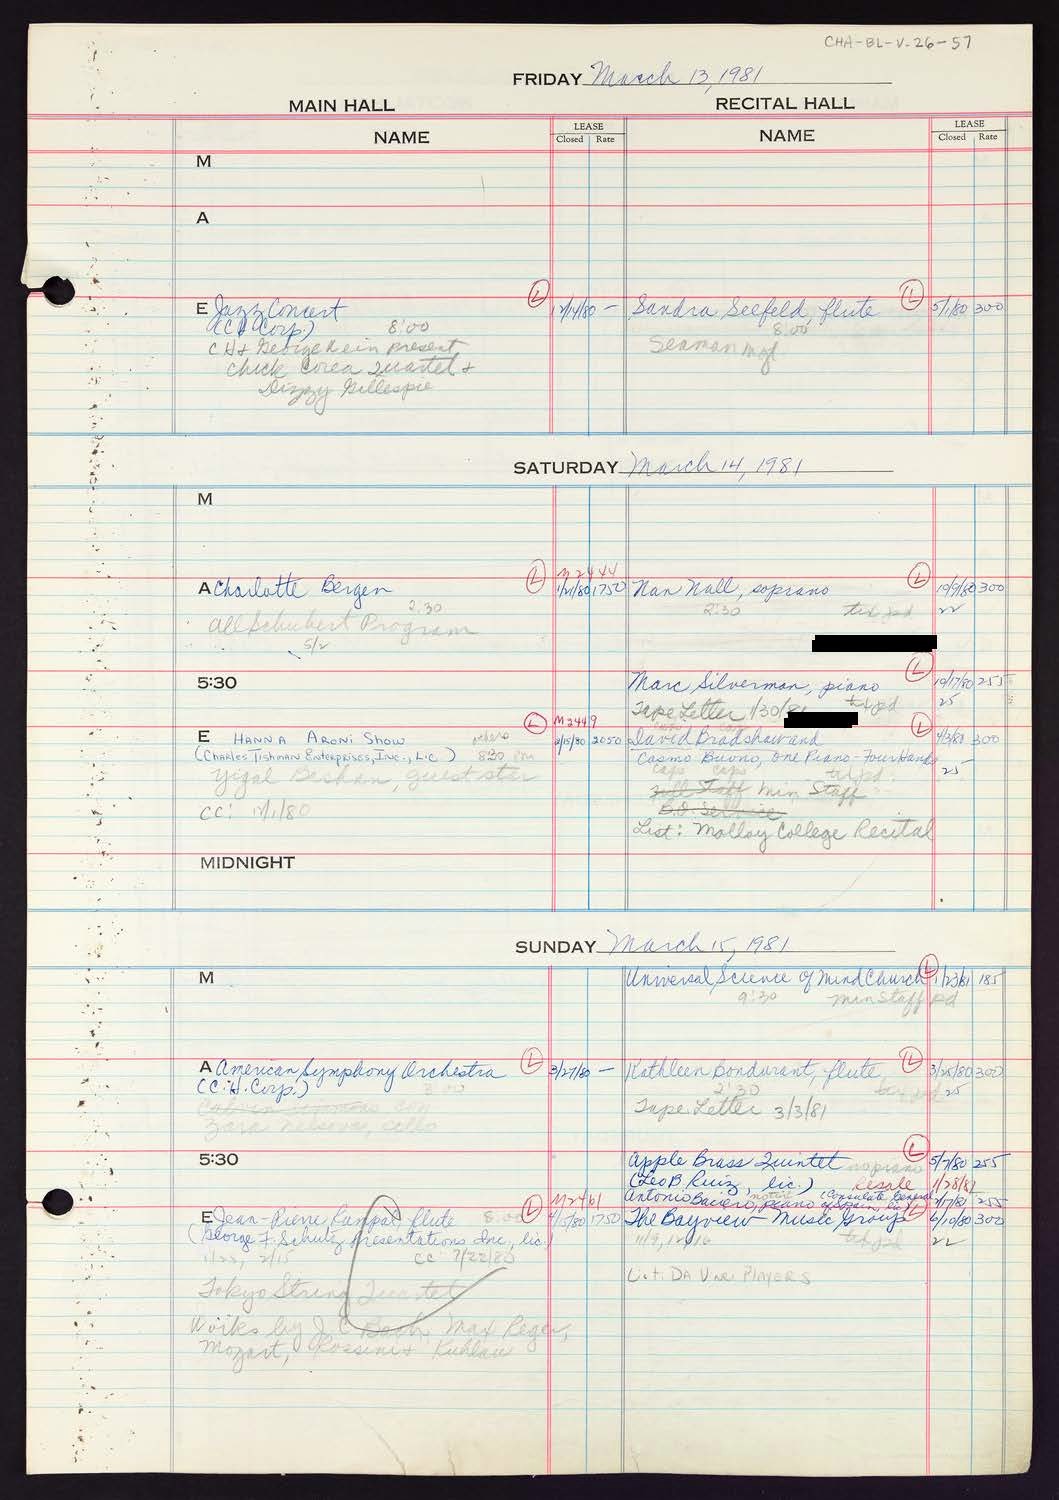 CHA-BL-V-26-57
FRIDAY March 13, 1981
MAIN HALL
RECITAL HALL
NAME
LEASE
Closed Rate
NAME
LEASE
Closed Rate
M
A
E Jazz Concert
(CH Corp.)
8:00
CH & George Wein present
Chick Corea Quartet &
Dizzy Gillespie
L
12/14/80 -
Sandra Seefeld, flute
8:00
Seaman Mgt
L
5/1/80 300
SATURDAY March 14, 1981
M
A Charlotte Bergen
2:30
All Schubert Program
5/2
L
M2444
1/21/80 1750
Nan Nall, soprano
2:30
tkt pd
L
10/9/80 300
22
5:30
Marc Silverman, piano
Tape Letter 1/30/81
tkt pd
L
10/17/80 255
25
E HANNA ARONI SHOW
(CHARLES TISHMAN ENTERPRISES, INC., LIC)
others
830 pm
Yigal Bashan, guest star
CC: 11/1/80
L
M2449
2/15/80 2050
David Bradshaw and
Cosmo Buono, One Piano-Four Hands
caps caps
tkt pd.
Full Staff Min Staff
B.O. Service
List: Molloy College Recital
L
4/3/80 300
25
MIDNIGHT
SUNDAY March 15, 1981
M
Universal Science of Mind Church
9:30
min Staff pd
L
1/23/81 185
A American Symphony Orchestra
(C.H. Corp.)
3:00
con
Zara Nelsova, cello
L
3/27/80 -
Kathleen Bondurant, flute
2:30
tkt pd
Tape Letter 3/3/81
L
3/25/80 300
25
5:30
Apple Brass Quintet
no piano
(Leo B. Ruiz, lic.)
Resale
Antonio Baciero, piano
(Consulate General
of Spain, lic)
L
5/7/80 255
1/28/81
2/17/81 255
E Jean-Pierre Rampal, flute
8:00
(George F. Schutz Presentations Inc., lic.)
11/23, 2/15
CC: 7/22/80
Tokyo String Quartet
Works by J C Bach, Max Reger,
Mozart, Rossini & Kuhlau
L
M2461
4/15/80 1750
The Bayview Music Group
tkt pd
List: DA Vinci PLAYERS
L
6/10/80 300
22